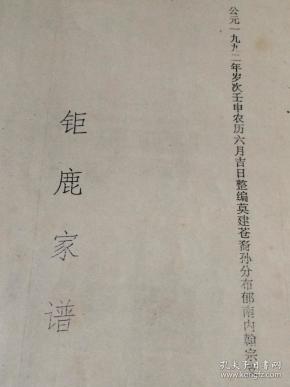 公元一九九二年岁次壬申农历六月吉日整编莫建苍裔孙分布郁南内翰宗
钜鹿家谱